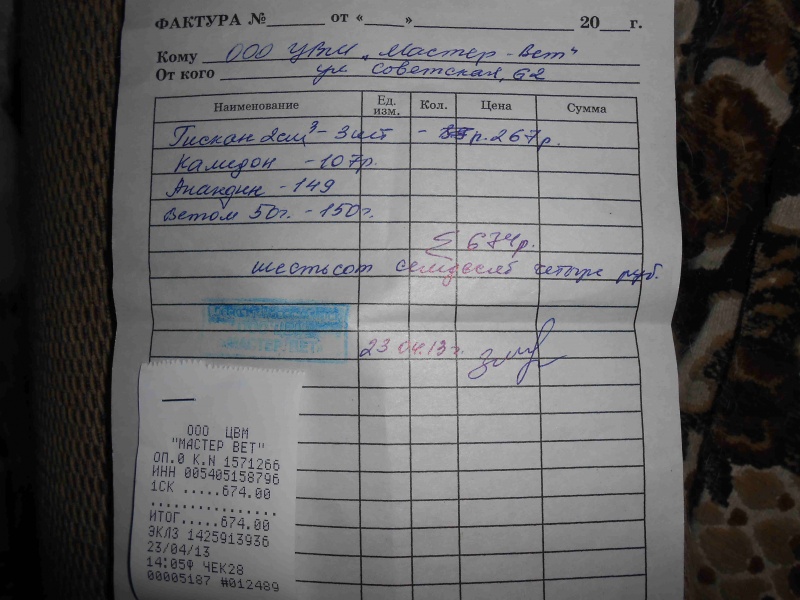 ФАКТУРА № от « » 20 г.
Кому ООО ЦВМ „Мастер-Вет"
От кого ул Советская, 62
Наименование Ед. изм. Кол. Цена Сумма
Гискан 2см³ - 3 шт - р. 267р.
Камедон - 107р.
Апандин - 149
Ветом 50г. - 150г.
Σ 674р.
шестьсот семдесят четыре руб.
МАСТЕР ВЕТ
23 04.13г.
ООО ЦВМ
"МАСТЕР ВЕТ"
ОП.0 К.N 1571266
ИНН 005405158796
1СК .....674.00
ИТОГ.....674.00
ЭКЛЗ 1425913936
23/04/13
14:05Ф ЧЕК28
00005187 #012489